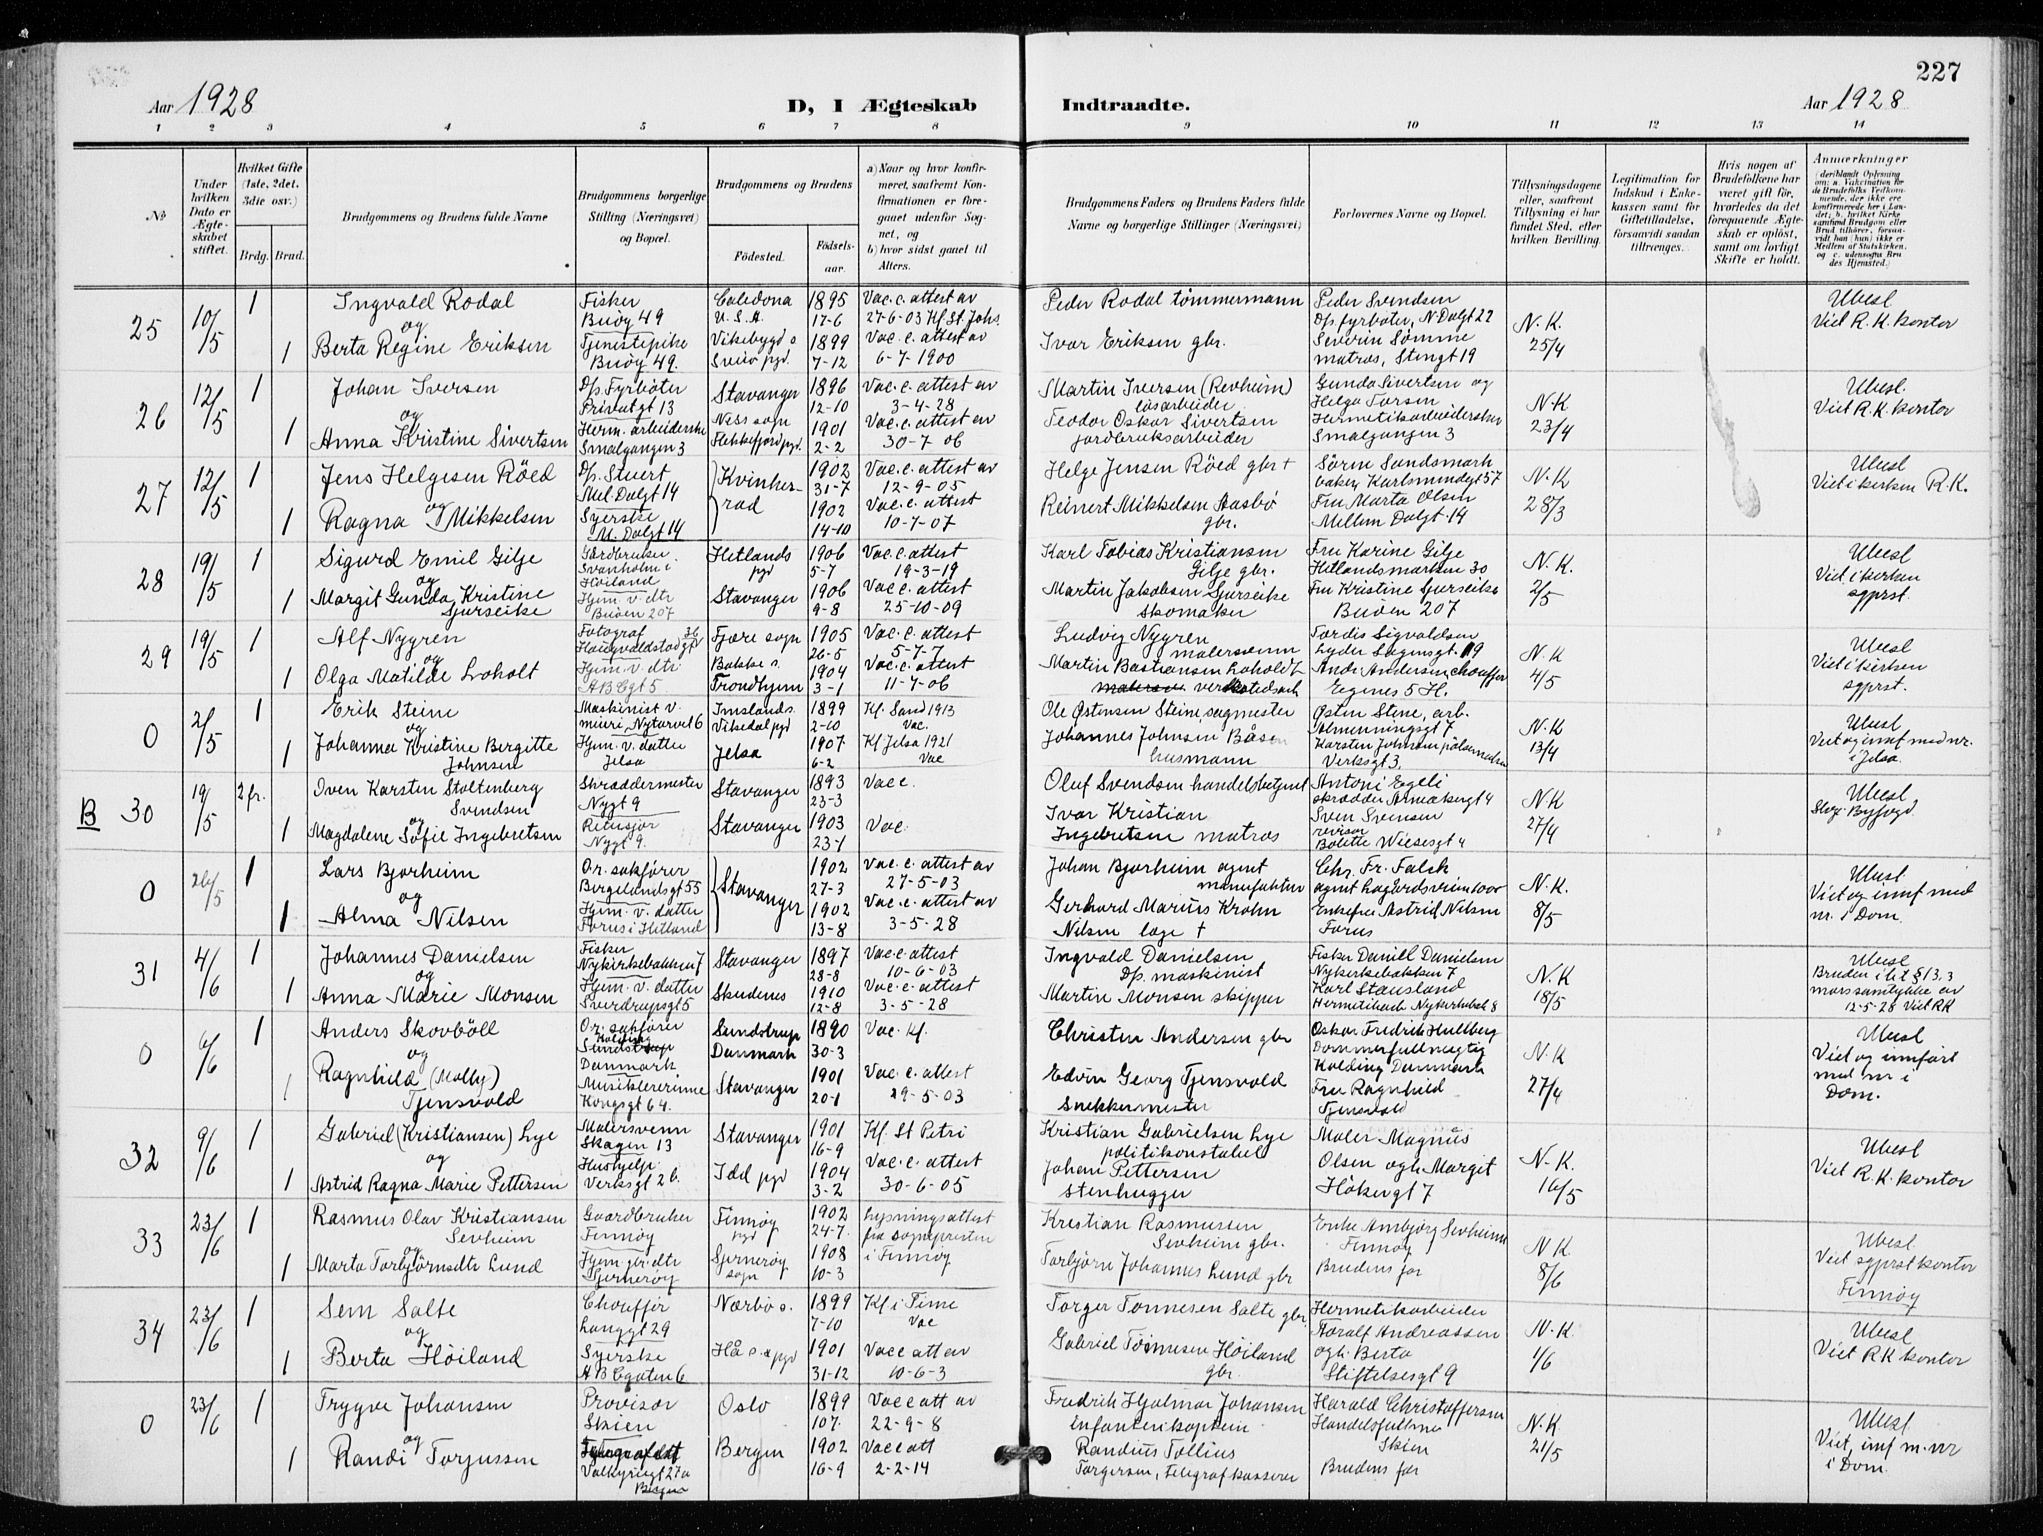 227
Aar 1928
D, I Ægteskab Indtraadte.
Aar 1928
1 2 3 4 5 6 7 8 9 10 11 12 13 14
No
Under hvilken Dato er Ægteskabet stiftet.
Hvilket Gifte (1ste, 2det, 3die osv.)
Brdg. Brud.
Brudgommens og Brudens fulde Navne
Brudgommens borgerlige Stilling (Næringsvei) og Bopæl.
Brudgommens og Brudens
Fødested. Fødselsaar.
a) Naar og hvor konfirmeret, saafremt Konfirmationen er foregaaet udenfor Sognet, og
b) hvor sidst gaaet til Alters.
Brudgommens Faders og Brudens Faders fulde Navne og borgerlige Stillinger (Næringsvei)
Forlovernes Navne og Bopæl.
Tillysningsdagene eller, saafremt Tillysning ei har fundet Sted, efter hvilken Bevilling.
Legitimation for Indskud i Enkekassen samt for Giftetilladelse, forsaavidt saadan tiltrænges.
Hvis nogen af Brudefolkene har været gift før, hvorledes da det foregaaende Ægteskab er opløst, samt om lovligt Skifte er holdt.
Anmærkninger (deriblandt Oplysning om: a. Vakcination for de Brudefolks Vedkommende, der ikke ere konfirmerede her i Landet; b. hvilket Kirkesamfund Brudgom eller Brud tilhører, forsaavidt han (hun) ikke er Medlem af Statskirken, og c. udensogns Brudes Hjemsted.)
25 10/5 1 Ingvald Rodal Fisker Buøy 49 Caledona U.S.A. 1895 17-6 Vac. c. attest av 27-6-03 Kf. St. Johs. Peder Rodal tømmermann Peder Svendsen Ds. fyrbøter, N Dalgt 22 N.K. 25/4 Ubesl Viet R.K. kontor
og
1 Berta Regine Eriksen Tjenestepike Buøy 49. Vikebygd s Sveio pgd. 1899 7-12 Vac. c. attest av 6-7-1900 Ivar Eriksen gbr. Severin Sømme matros, Stengt 19
26 12/5 1 Johan Iversen Ds. Fyrbøter Privatgt 13 Stavanger 1896 12-10 Vac. c. attest av 3-4-28 Martin Iversen (Revheim) løsarbeider Gunda Sivertsen og Helga Torsen N.K 23/4 Ubesl. Viet R.K. kontor
og
1 Anna Kristine Sivertsen Herm. arbeiderske Smalgangen 3 Nes sogn Flekkefjord pgd. 1901 2-2 Vac. c. attest av 30-7-06 Teodor Oskar Sivertsen jordbruksarbeider Hermetikarbeiderske Smalgangen 3
27 12/5 1 Jens Helgesen Röed Ds. Stuert Mel. Dalgt 14 Kvinherrad 1902 31-7 Vac. c. attest av 12-9-05 Helge Jensen Röed gbr + Sören Sandsmark baker, Karlsminnegt 57 N.K 28/3 Ubesl Viet i kirken R.K.
og
1 Ragna Mikkelsen Syerske M. Dalgt 14 1902 14-10 Vac. c. attest 10-7-07 Reinert Mikkelsen Aasbö gbr. Fru Marta Olsen Mellem Dalgt. 14
28 19/5 1 Sigurd Emil Gilje Gardbruker Svanholm i Höiland Hetlands pgd 1906 5-7 Vac. c. attest 19-3-19 Karl Tobias Kristiansen Gilje gbr. Fru Karine Gilje Hetlandsmarken 30 N.K. 2/5 Ubesl Viet i kirken sgprst.
og
1 Margit Gunda Kristine Gjerseike Hjem. v. dtr Buøen 207 Stavanger 1906 9-8 Vac c. attest 25-10-09 Martin Jakobsen Gjerseike Skomaker Fru Kristine Gjerseike Buøen 207
29 19/5 1 Alf Nygren Fotograf Haugvaldstadgt 36 Fjære sogn 1905 26-5 Vac. c. attest 5-7-7 Ludvig Nygren malersvenn Tordis Sigvaldsen Lyder Sagensgt. 19 N.K 4/5 Ubesl Viet i kirken sgprst.
og
1 Olga Matilde Loholt Hjem. v. dtr AB Cgt 5 Bakke s. Trondhjem 1904 3-1 Vac. c. attest 11-7-06 Martin Bastiansen Loholdt verkstedsarb Andr. Andersen, chauffør Egenes 5 H.
0 2/5 1 Erik Steine Maskinist v. mieri, Nytorvet 6 Imslands. Vikedal pgd 1899 2-10 Kf. Sand 1913 Vac. Ole Østensen Steine, sagmester Østen Stene, arb. Almenningsgt 7 N.K 13/4 Ubesl Viet og innf med nr. i Jelsa.
og
1 Johanna Kristine Bergitte Johnsen Hjem. v. datter Jelsa Jelsa 1907 6-2 Kf Jelsa 1921 Vac Johannes Johnsen Båsen husmann Karsten Johnsen pölsemaker Verksgt 3.
B 30 19/5 2 fr. Iven Karsten Stoltenberg Svendsen Skræddermester Nygt 9 Stavanger 1893 23-3 Vac c. Oluf Svendsen handelsbetjent Antoni Egeli skrædder N.K 27/4 Ubesl Stvgr Byfogd.
og
1 Magdalene Sofie Ingebretsen Nygt 9. Stavanger 1903 23-1 Vac Ivar Kristian Ingebretsen matros Sven Svensen revisor Bolette Wiesesgt 4
0 26/5 1 Lars Bjorheim O.r. sakförer Bergelandsgt 55 Stavanger 1902 27-3 Vac. c. attest av 27-5-03 Johan Bjorheim agent manufaktur Chr. Fr. Falck agent Lagårdsveien 100 N.K. 8/5 Ubesl Viet og innf med nr. i Dom.
og
1 Alma Nilsen Hjem. v. datter Forus i Hetland 1902 13-8 Vac. c. attest av 3-5-28 Gerhard Marius Krohn Nilsen læge + Enkefru Astrid Nilsen Forus
31 4/6 1 Johannes Danielsen Fisker Nykirkebakken 7 Stavanger 1897 28-8 Vac. c. attest 10-6-03 Ingvald Danielsen Ds. maskinist Fisker Daniel Danielsen Nykirkebakken 7 N.K 18/5 Ubesl Bruden i h.t. § 13,3 morssamtykke av 12-5-28 Viet RK
og
1 Anna Marie Monsen Hjem. v. datter Sverdrupsgt 5 Skudenes 1910 12-8 Vac. c. attest 3-5-28 Martin Monsen skipper Karl Stausland
0 6/6 1 Anders Skovböll O.r. sakförer Kolding Danmark Sundstrup Danmark 1890 30-3 Vac. Kf. Christen Andersen gbr Oskar Fredrik Hullberg Dommerfullmegtig Kolding Danmark N.K 27/4 Ubesl Viet og innfört med nr i Dom.
og
1 Ragnhild (Molly) Tjensvold Musiklererinne Kongsgt 64. Stavanger 1901 20-1 Vac. c. attest 29-5-03 Edvin Georg Tjensvold Snekkermester Fru Ragnhild Tjensvold
32 9/6 1 Gabriel (Kristiansen) Lye Malersvenn Skagen 13 Stavanger 1901 16-9 Kf. St Petri Kristian Gabrielsen Lye politikonstabel Maler Magnus Olsen og h. Margit Hökergt 7 N.K. 16/5 Ubesl Viet R.K. kontor
og
1 Astrid Ragna Marie Pettersen Hushjelp Verksgt 26. Idd pgd 1904 3-2 Vac. c. attest 30-6-05 Johan Pettersen stenhugger
33 23/6 1 Rasmus Olav Kristiansen Sevheim Gaardbruker Finnøy Finnøy pgd 1902 24-7 Lysningsattest fra sognepresten i Finnøy Kristian Rasmussen Sevheim gbr. Enke Ambjørg Sevheim Finnøy N.K. 8/6 Ubesl Viet sgprst kontor Finnøy
og
1 Marta Torbjörnsdtr Lund Hjem gir dtr Sjernerøy Sjernerøy sogn 1908 10-3 Torbjörn Johannes Lund gbr Brudens far
34 23/6 1 Sem Salte Chauffør Langgt 29 Nærbø s. 1899 7-10 Kf i Time Vac Torger Tonnesen Salte gbr. Hermetikarbeider Toralf Andreassen og h. Berta Stiftelsesgt 9 N.K. 1/6 Ubesl Viet RK kontor
og
1 Berta Höiland Syerske AB Cgaten 6 Hå s. a pgd 1901 31-12 Vac c att av 10-6-3 Gabriel Tönnesen Höiland gbr.
0 23/6 1 Trygve Johansen Provisor Skien Oslo 1899 10 7. Vac c att av 22-9-8 Fredrik Hjalmar Johansen infanterikaptein Harald Christoffersen Handelsfullm. Skien N.K 21/5 Ubesl Viet, innf m. nr i Dom.
og
1 Randi Torjussen Valkyriegt 27a Bergen Bergen 1902 16-9 Vac c att 2-2-14 Randius Tollius Torgersen, telegrafkasserer Brudens far